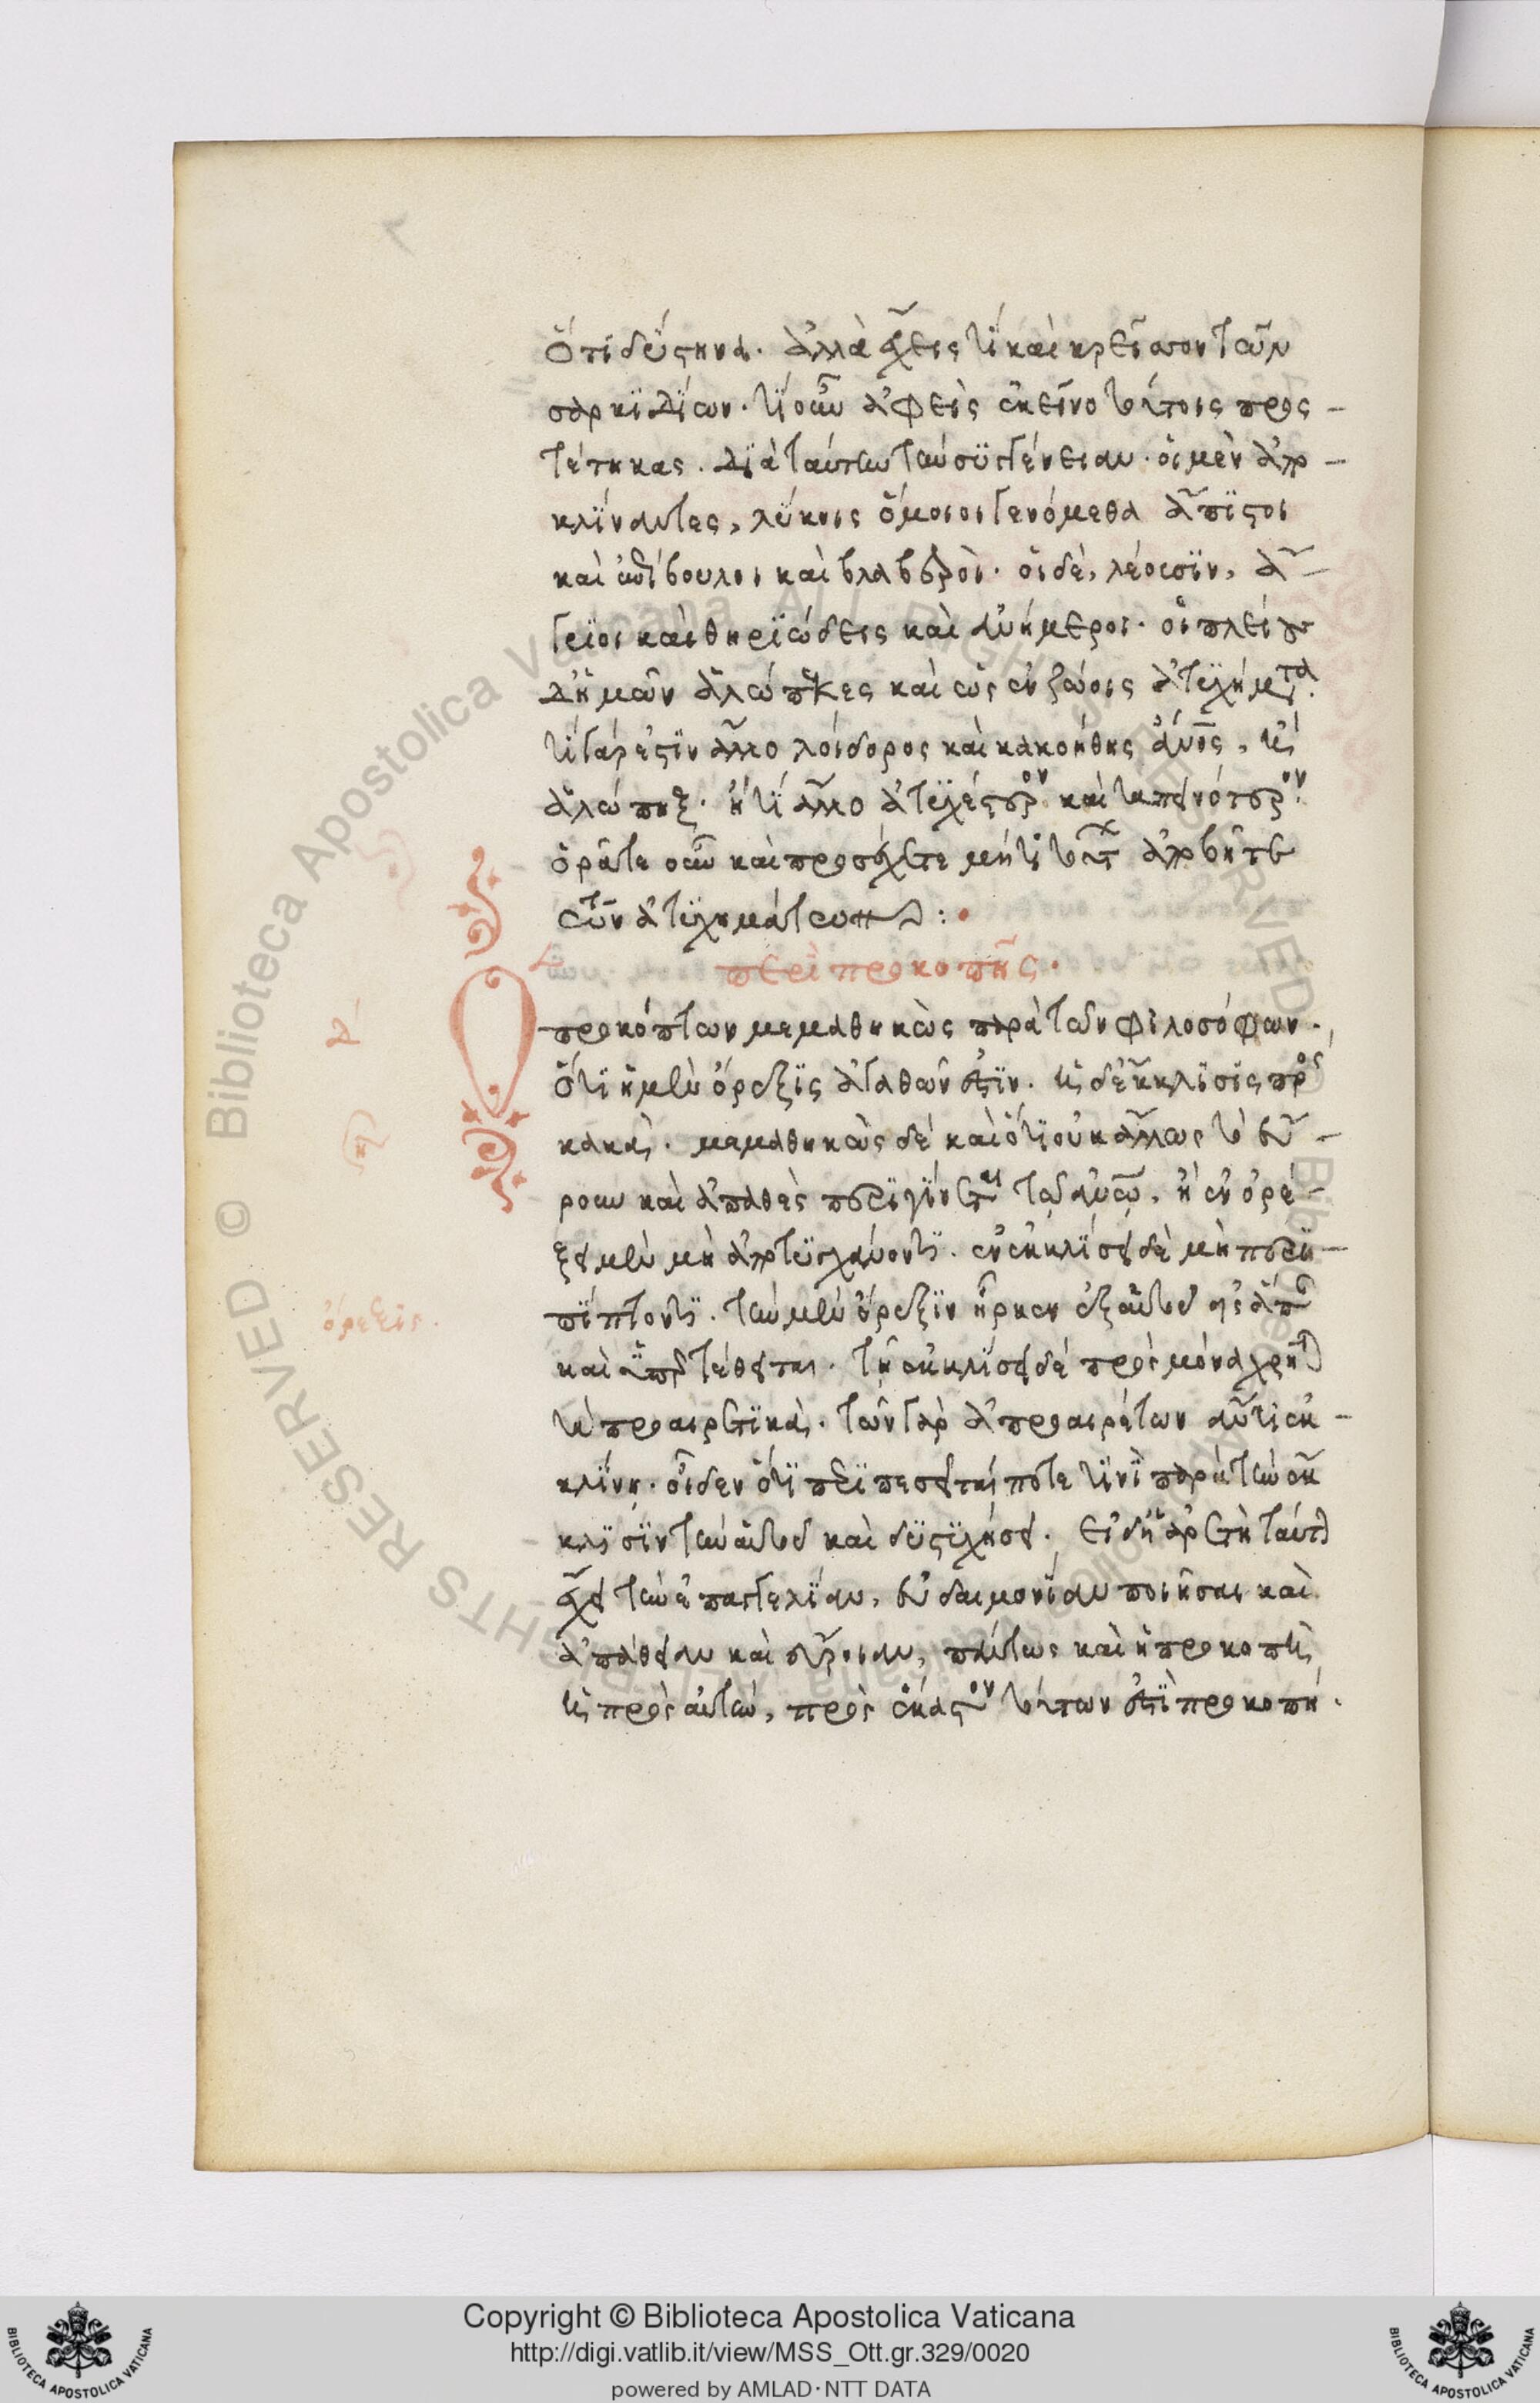 ὅτι δύστηνα. ἀλλὰ ἔχεις τὶ καὶ κρεῖττον τῶν
σαρκιδίων. τί οὖν ἀφεὶς ἐκεῖνο τούτοις προσ-
τέτηκας. διὰ ταύτην τὴν συγγένειαν. οἱ μὲν ἀπο-
κλίναντες, λύκοις ὅμοιοι γενόμεθα ἄπιστοι
καὶ ἐπίβουλοι καὶ βλαβεροὶ. οἱ δὲ, λέουσιν, ἄ-
γριοι καὶ θηριώδεις καὶ ἀνήμεροι. οἱ πλείους
δ' ἡμῶν ἀλώπεκες καὶ ὡς ἐν ζώοις ἀτυχήματα.
τί γάρ ἐστιν ἄλλο λοίδορος καὶ κακοήθης ἄνος, ἢ
ἀλώπηξ. ἤ τί ἄλλο ἀτυχέστερον καὶ ταπεινότερον.
ὁρᾶτε οὖν καὶ προσέχετε μή τι τούτων ἀποβῆτε
τῶν ἀτυχημάτων :.
περὶ προκοπῆς.
Ὁ προκόπτων μεμαθηκὼς παρὰ τῶν φιλοσόφων.
ὅτι ἡ μὲν ὄρεξις ἀγαθῶν ἐστιν. ἡ δ' ἔκκλισις πρὸς
κακὰ. μεμαθηκὼς δὲ καὶ ὅτι οὐκ ἄλλως τὸ εὔ-
ρουν καὶ ἀπαθὲς περιγίνεται τῷ ἀνῳ, ἢ ἐν ὀρέ-
ξει μὲν μὴ ἀποτυγχάνοντι. ἐν ἐκκλίσει δὲ μὴ περι-
πίπτοντι. τὴν μὲν ὄρεξιν ἦρκεν ἐξ αὑτοῦ
καὶ ὑπερτέθειται. τῇ ἐκκλίσει δὲ πρὸς μόνα χρῆται
τὰ προαιρετικὰ. τῶν γὰρ ἀπροαιρέτων ἄν τι ἐκ-
κλίνῃ. οἶδεν ὅτι περιπεσεῖταί ποτε τινὶ παρὰ τὴν ἔκ
κλισιν τὴν αὑτοῦ καὶ δυστυχήσει. εἰ δ' ἡ ἀρετὴ ταύτην
ἔχει τὴν ἐπαγγελίαν, εὐδαιμονίαν ποιῆσαι καὶ
ἀπάθειαν καὶ εὔροιαν, πάντως καὶ ἡ προκοπὴ
ἡ πρὸς αὐτὴν, πρὸς ἕκαστον τούτων ἐστὶ προκοπή.
ὄρεξις.
Copyright © Biblioteca Apostolica Vaticana
http://digi.vatlib.it/view/MSS_Ott.gr.329/0020
powered by AMLAD·NTT DATA